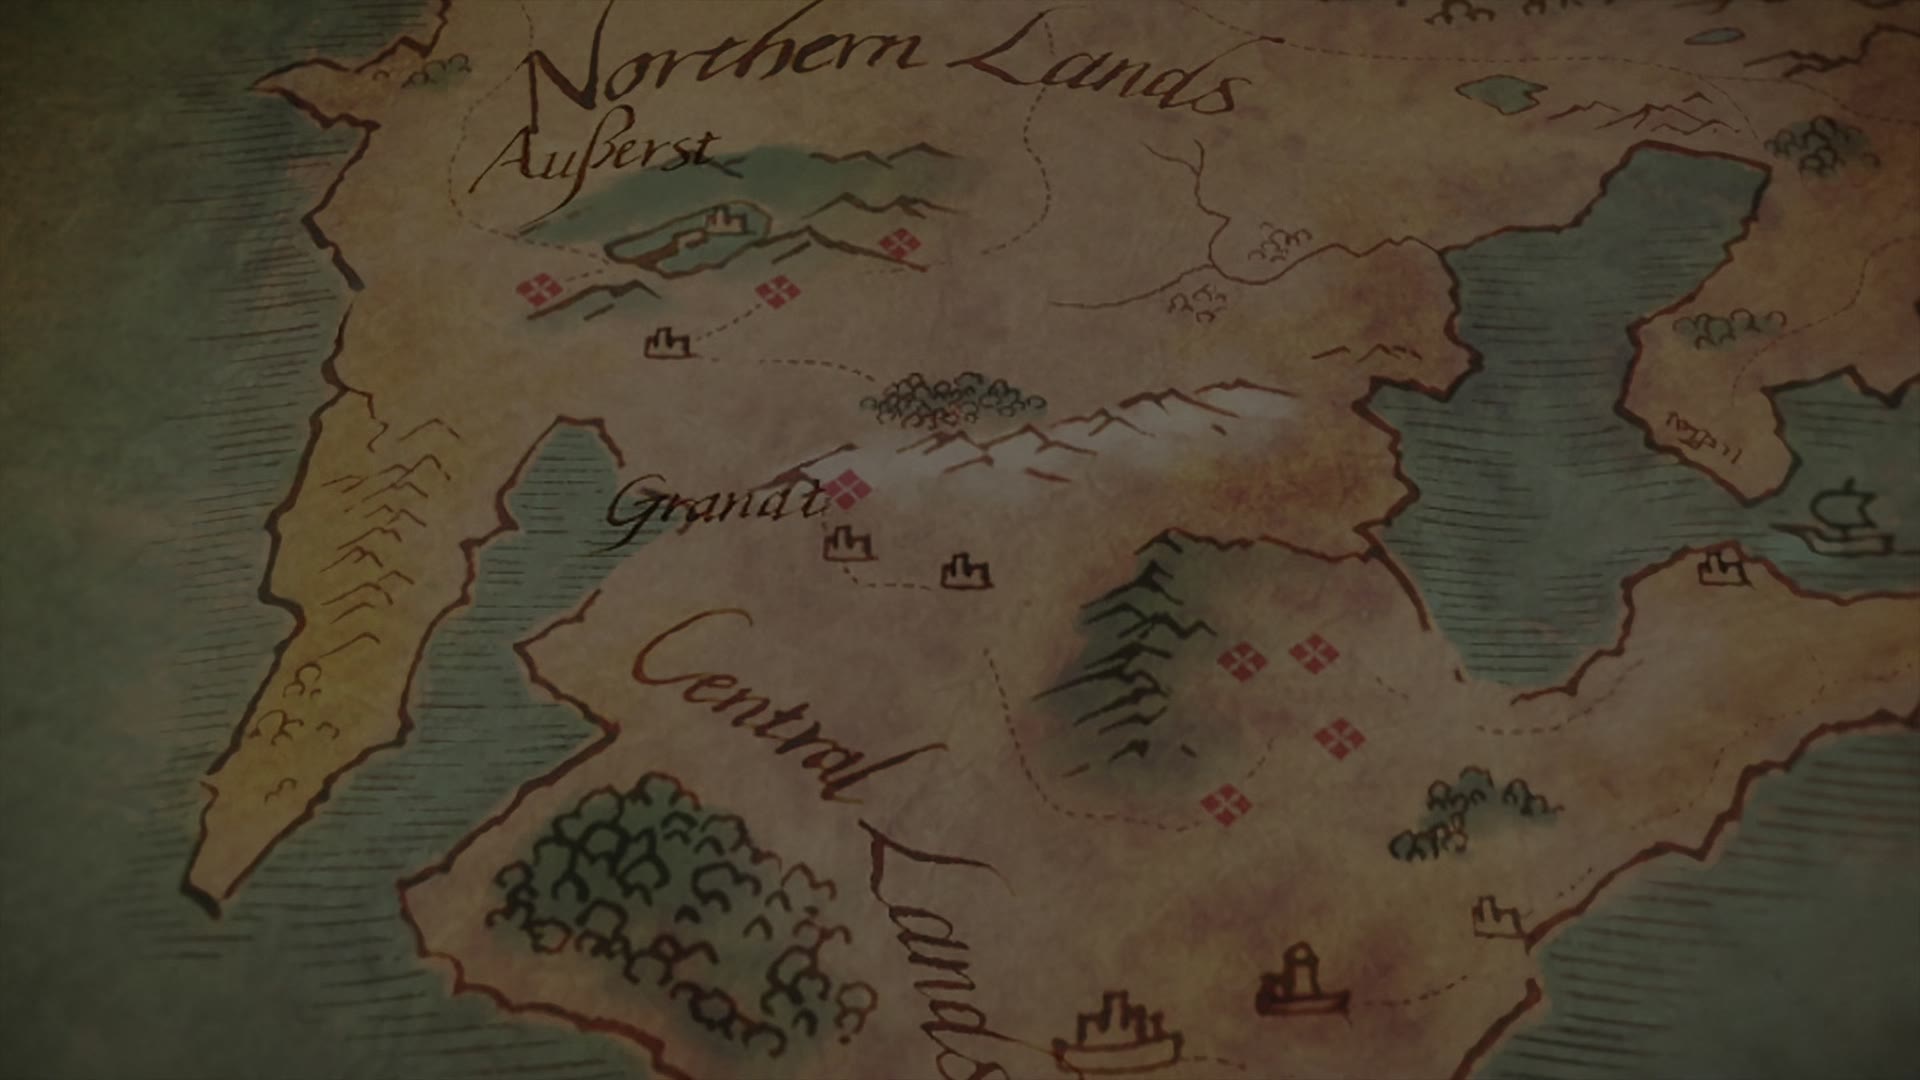 Northern Lands
Außerst
Granat
Central
Lands